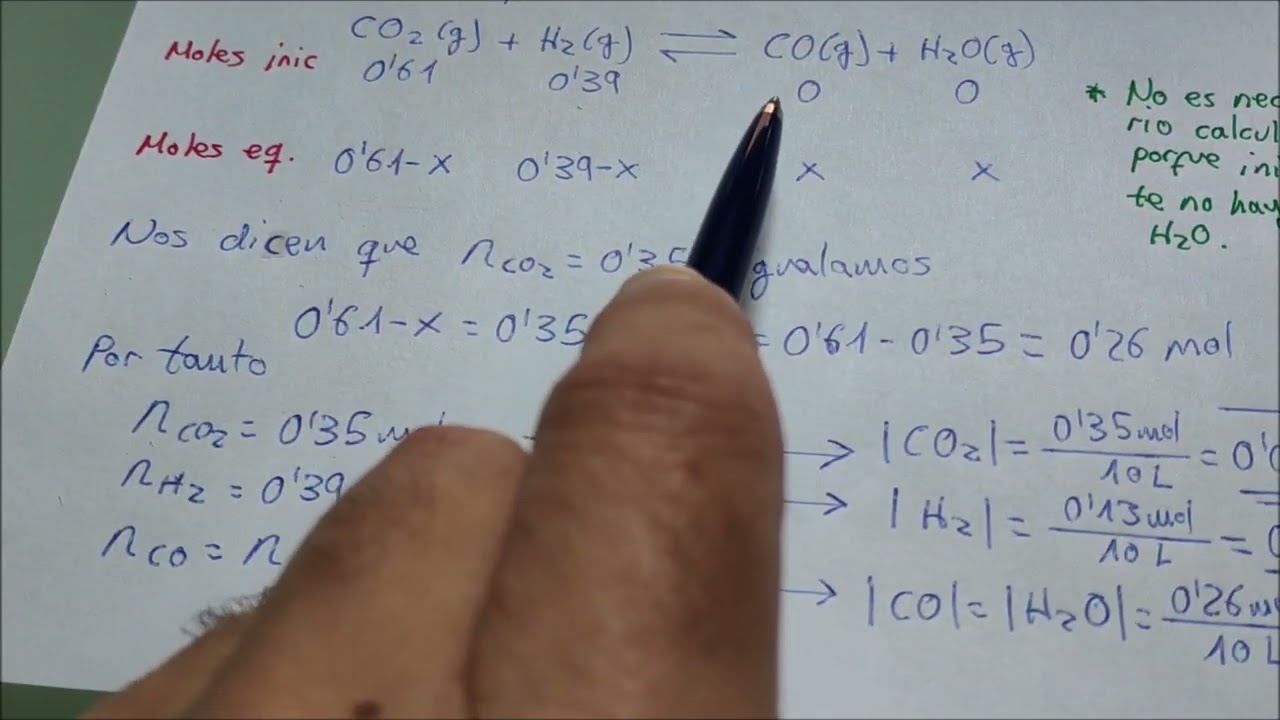 CO₂(g) + H₂(g) ⇌ CO(g) + H₂O(g)
Moles inic 0'61 0'39 0 0
Moles eq. 0'61-x 0'39-x x x
* No es nec
rio calcul
porque ini
te no hay
H₂O.
Nos dicen que n_CO₂ = 0'35 gualamos
0'61-x = 0'35 = 0'61 - 0'35 = 0'26 mol
Por tanto
n_CO₂ = 0'35 mol → |CO₂| = 0'35 mol / 10 L = 0'0
n_H₂ = 0'39 → |H₂| = 0'13 mol / 10 L =
n_CO = n → |CO| = |H₂O| = 0'26 mo / 10 L